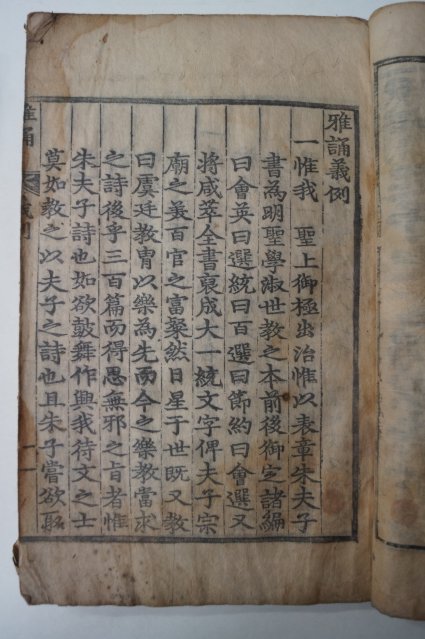 雅誦義例
一惟我 聖上御極出治惟以表章朱夫子
書為明聖學淑世教之本前後御定諸編
曰會英曰選統曰百選曰節約曰會選又
將咸萃全書裒成大一統文字俾夫子宗
廟之美百官之富粲然日星于世既又教
曰虞廷教胄以樂為先而今之樂教當求
之詩後乎三百篇而得思無邪之旨者惟
朱夫子詩也如欲鼓舞作興我待文之士
莫如教之以夫子之詩也且朱子嘗欲
雅誦 義例 一